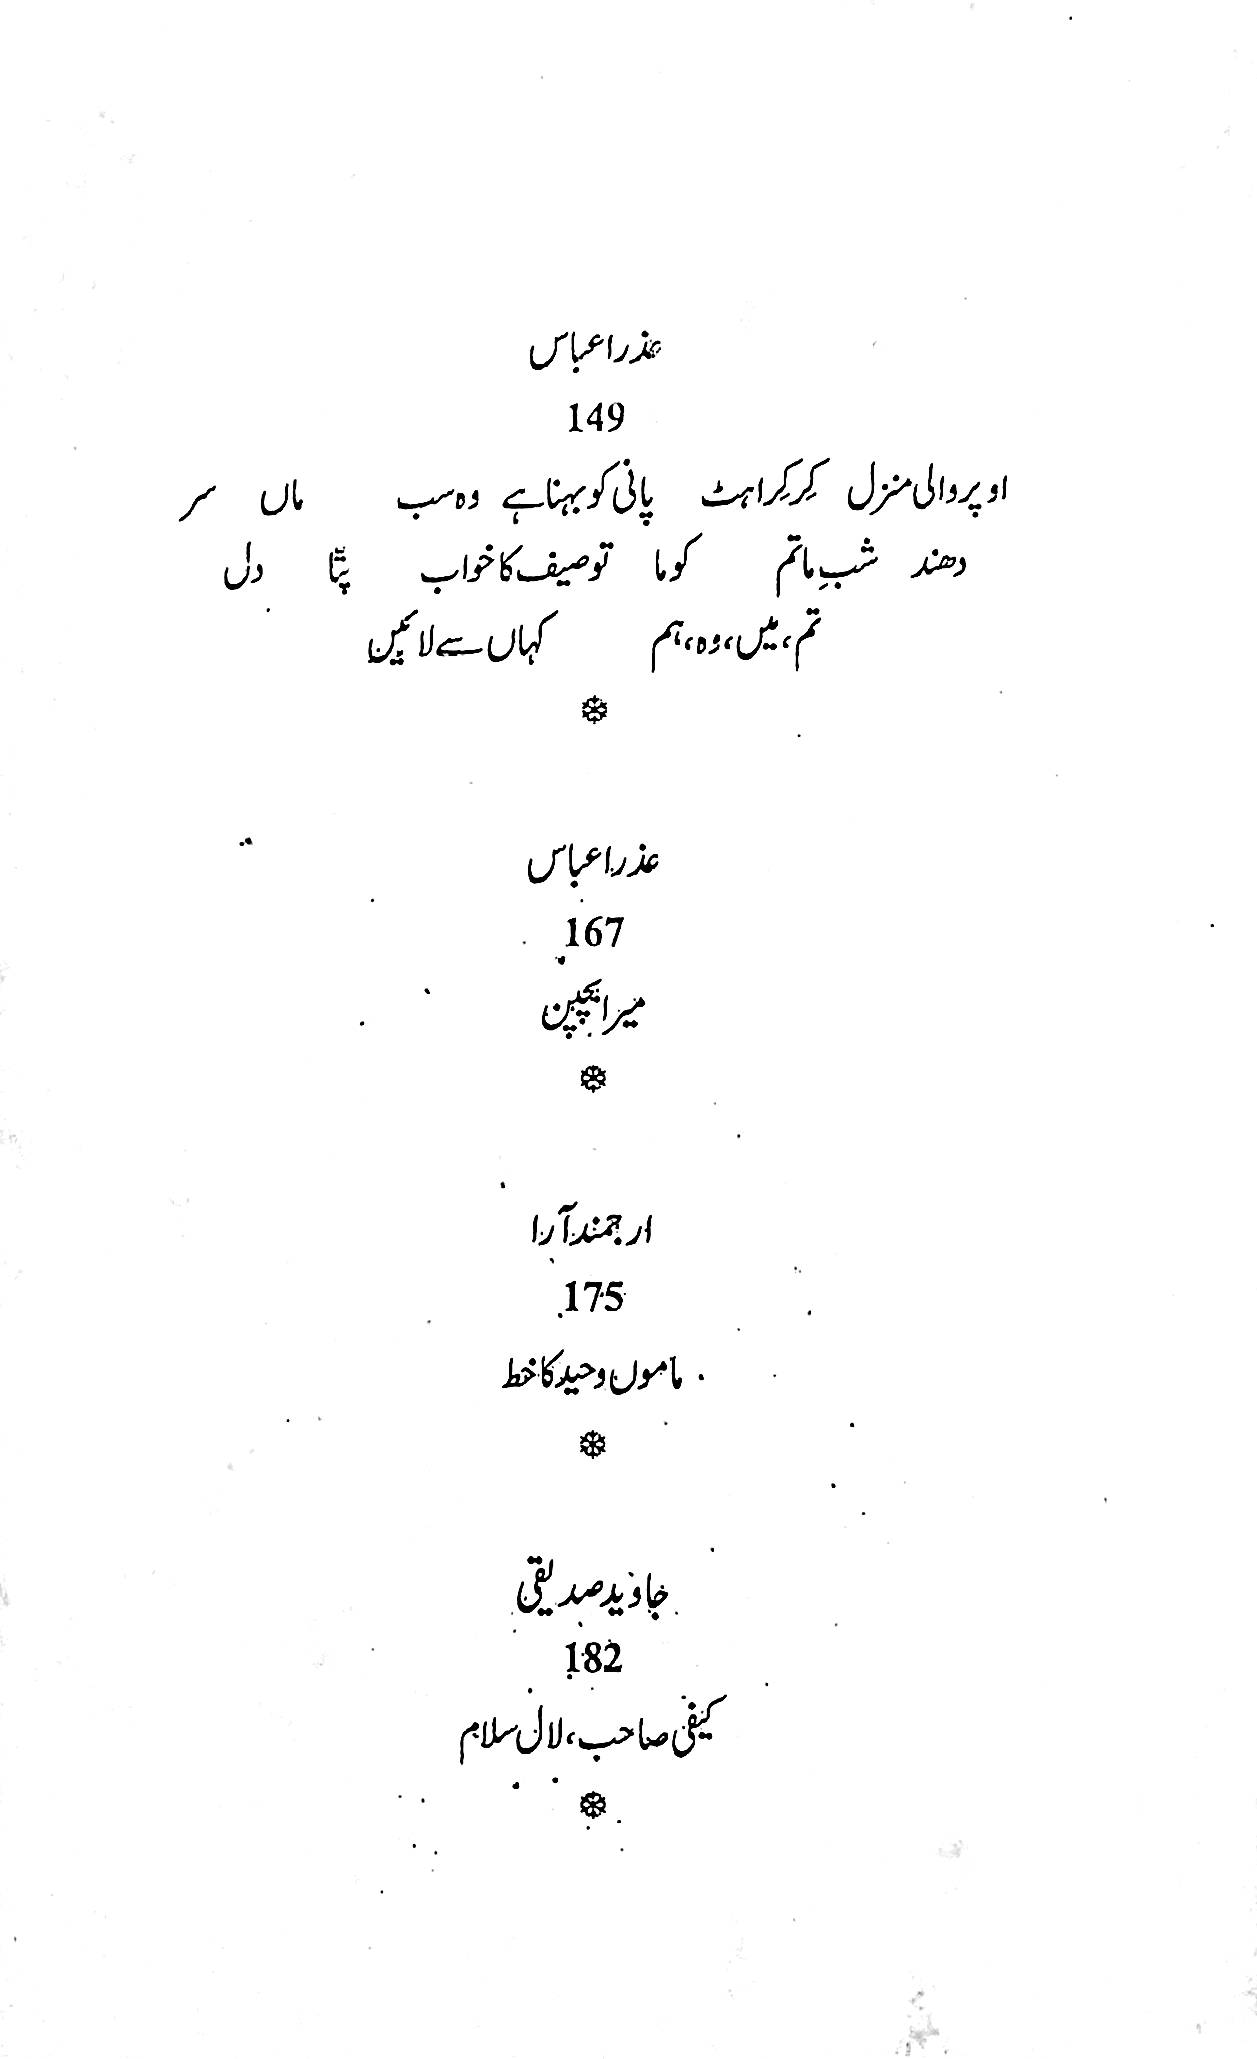 عذرا عباس
149
اوپر والی منزل کِرکِراہٹ پانی کو بہنا ہے وہ سب ماں سر
دھند شبِ ماتم کوما توصیف کا خواب پتّا دل
تم، میں، وہ، ہم کہاں سے لائیں
عذرا عباس
167
میرا بچپن
ارجمند آرا
175
ماموں وحید کا خط
جاوید صدیقی
182
کیفی صاحب، لال سلام